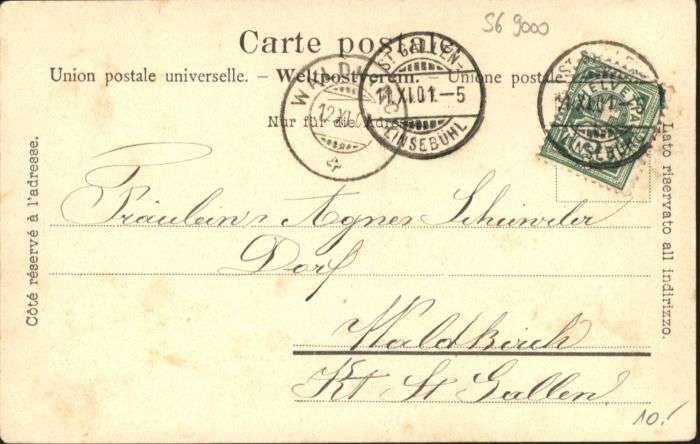 S6 9000
Carte postale.
Union postale universelle. – Weltpostverein. – Unione postale
Nur für die Adresse
Côté réservé à l'adresse.
Lato riservato all indirizzo.
ST. GALLEN-
11.XI.01.-5
LINSEBÜHL
WALD
12.XI.01
11.XI.01.-5
HELVETIA
LINSEBÜHL
Fräulein Agnes Scheiwiler
Dorf
Waldkirch
Kt. St Gallen
10.-